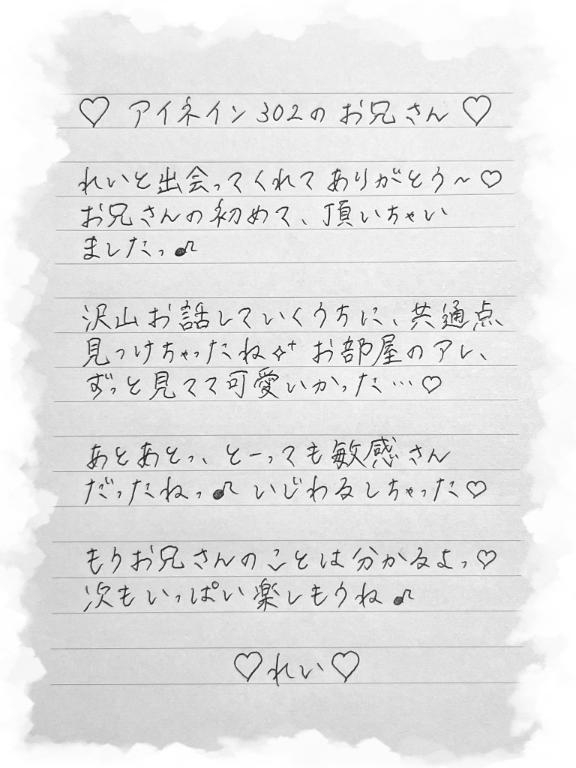 ♡ アイネイン302のお兄さん ♡
れいと出会ってくれてありがとう〜♡
お兄さんの初めて、頂いちゃい
ましたっ♪
沢山お話していくうちに、共通点
見つけちゃったね✧⁺ お部屋のアレ、
ずっと見てて可愛いかった…♡
あとあとっ、とーっても敏感さん
だったねっ♪ いじわるしちゃった♡
もうお兄さんのことは分かるよっ♡
次もいっぱい楽しもうね♪
♡れい♡